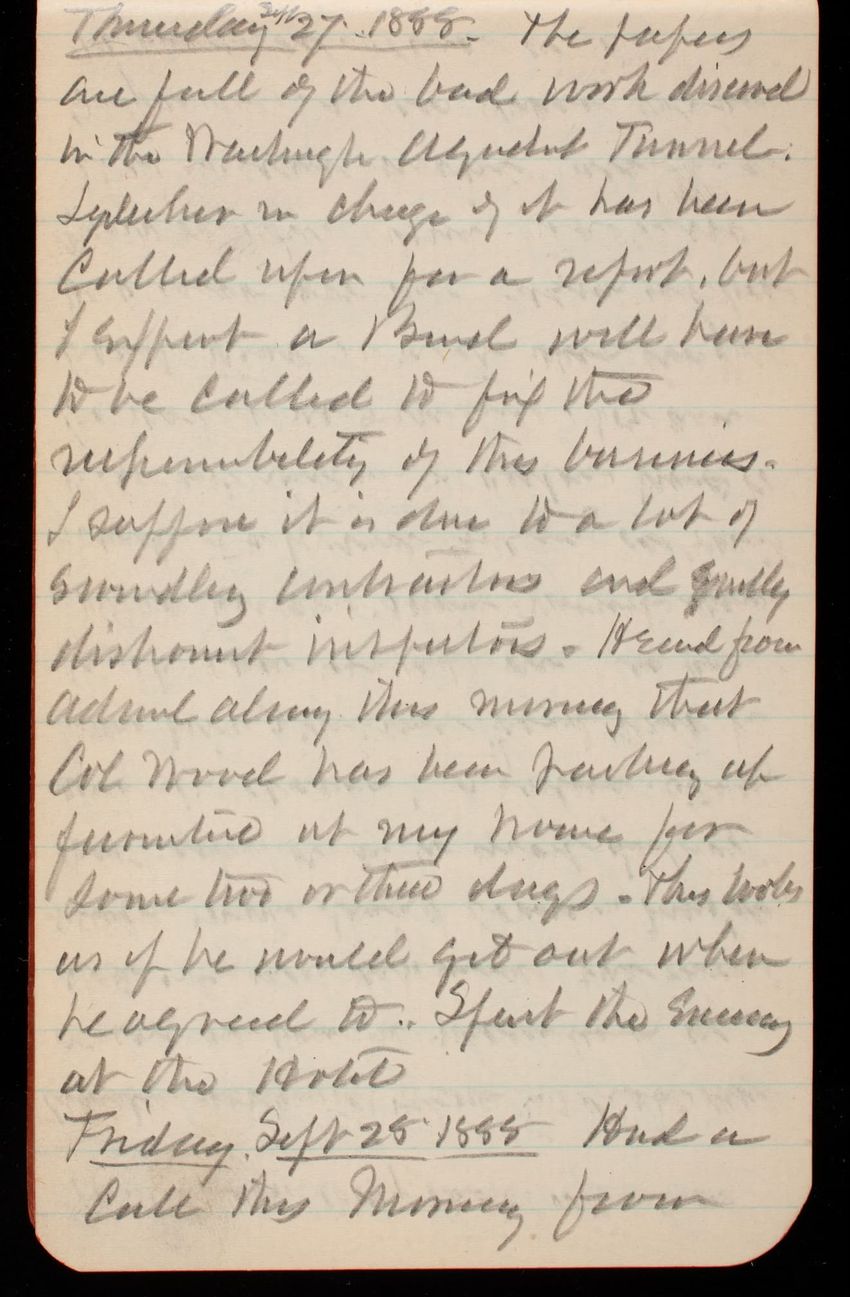 Thursday Sept 27 1888. The papers
are full of the bad work discovd
in the Washingtn Aqueduct Tunnel.
in charge of it has been
Called upon for a report, but
I expect a Board will have
to be called to fix the
responsibility of this business.
I suppose it is due to a lot of
swindling contractors and
dishonest inspectors. Heard from
this morning that
Col Wood has been packing up
furniture at my house for
some two or three days. This looks
as if he would get out when
he agreed to. Spent the Evening
at the Hotel
Friday. Sept 28 1888 Had a
Call this Morning from